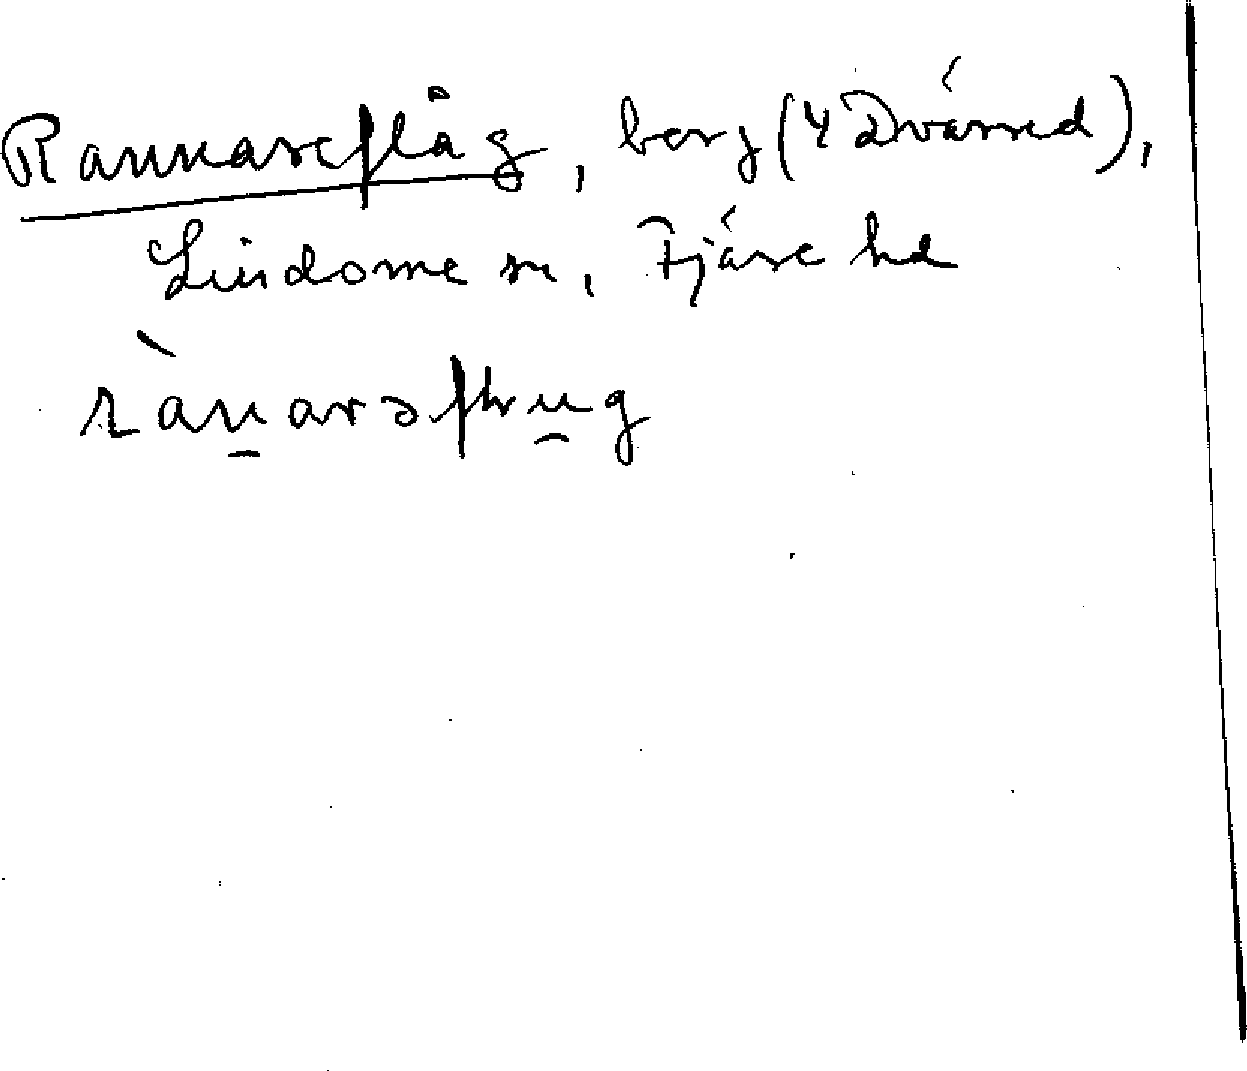 Rannareflåg, berg (4 Dvärred),
Lindome sn, Fjäre hd